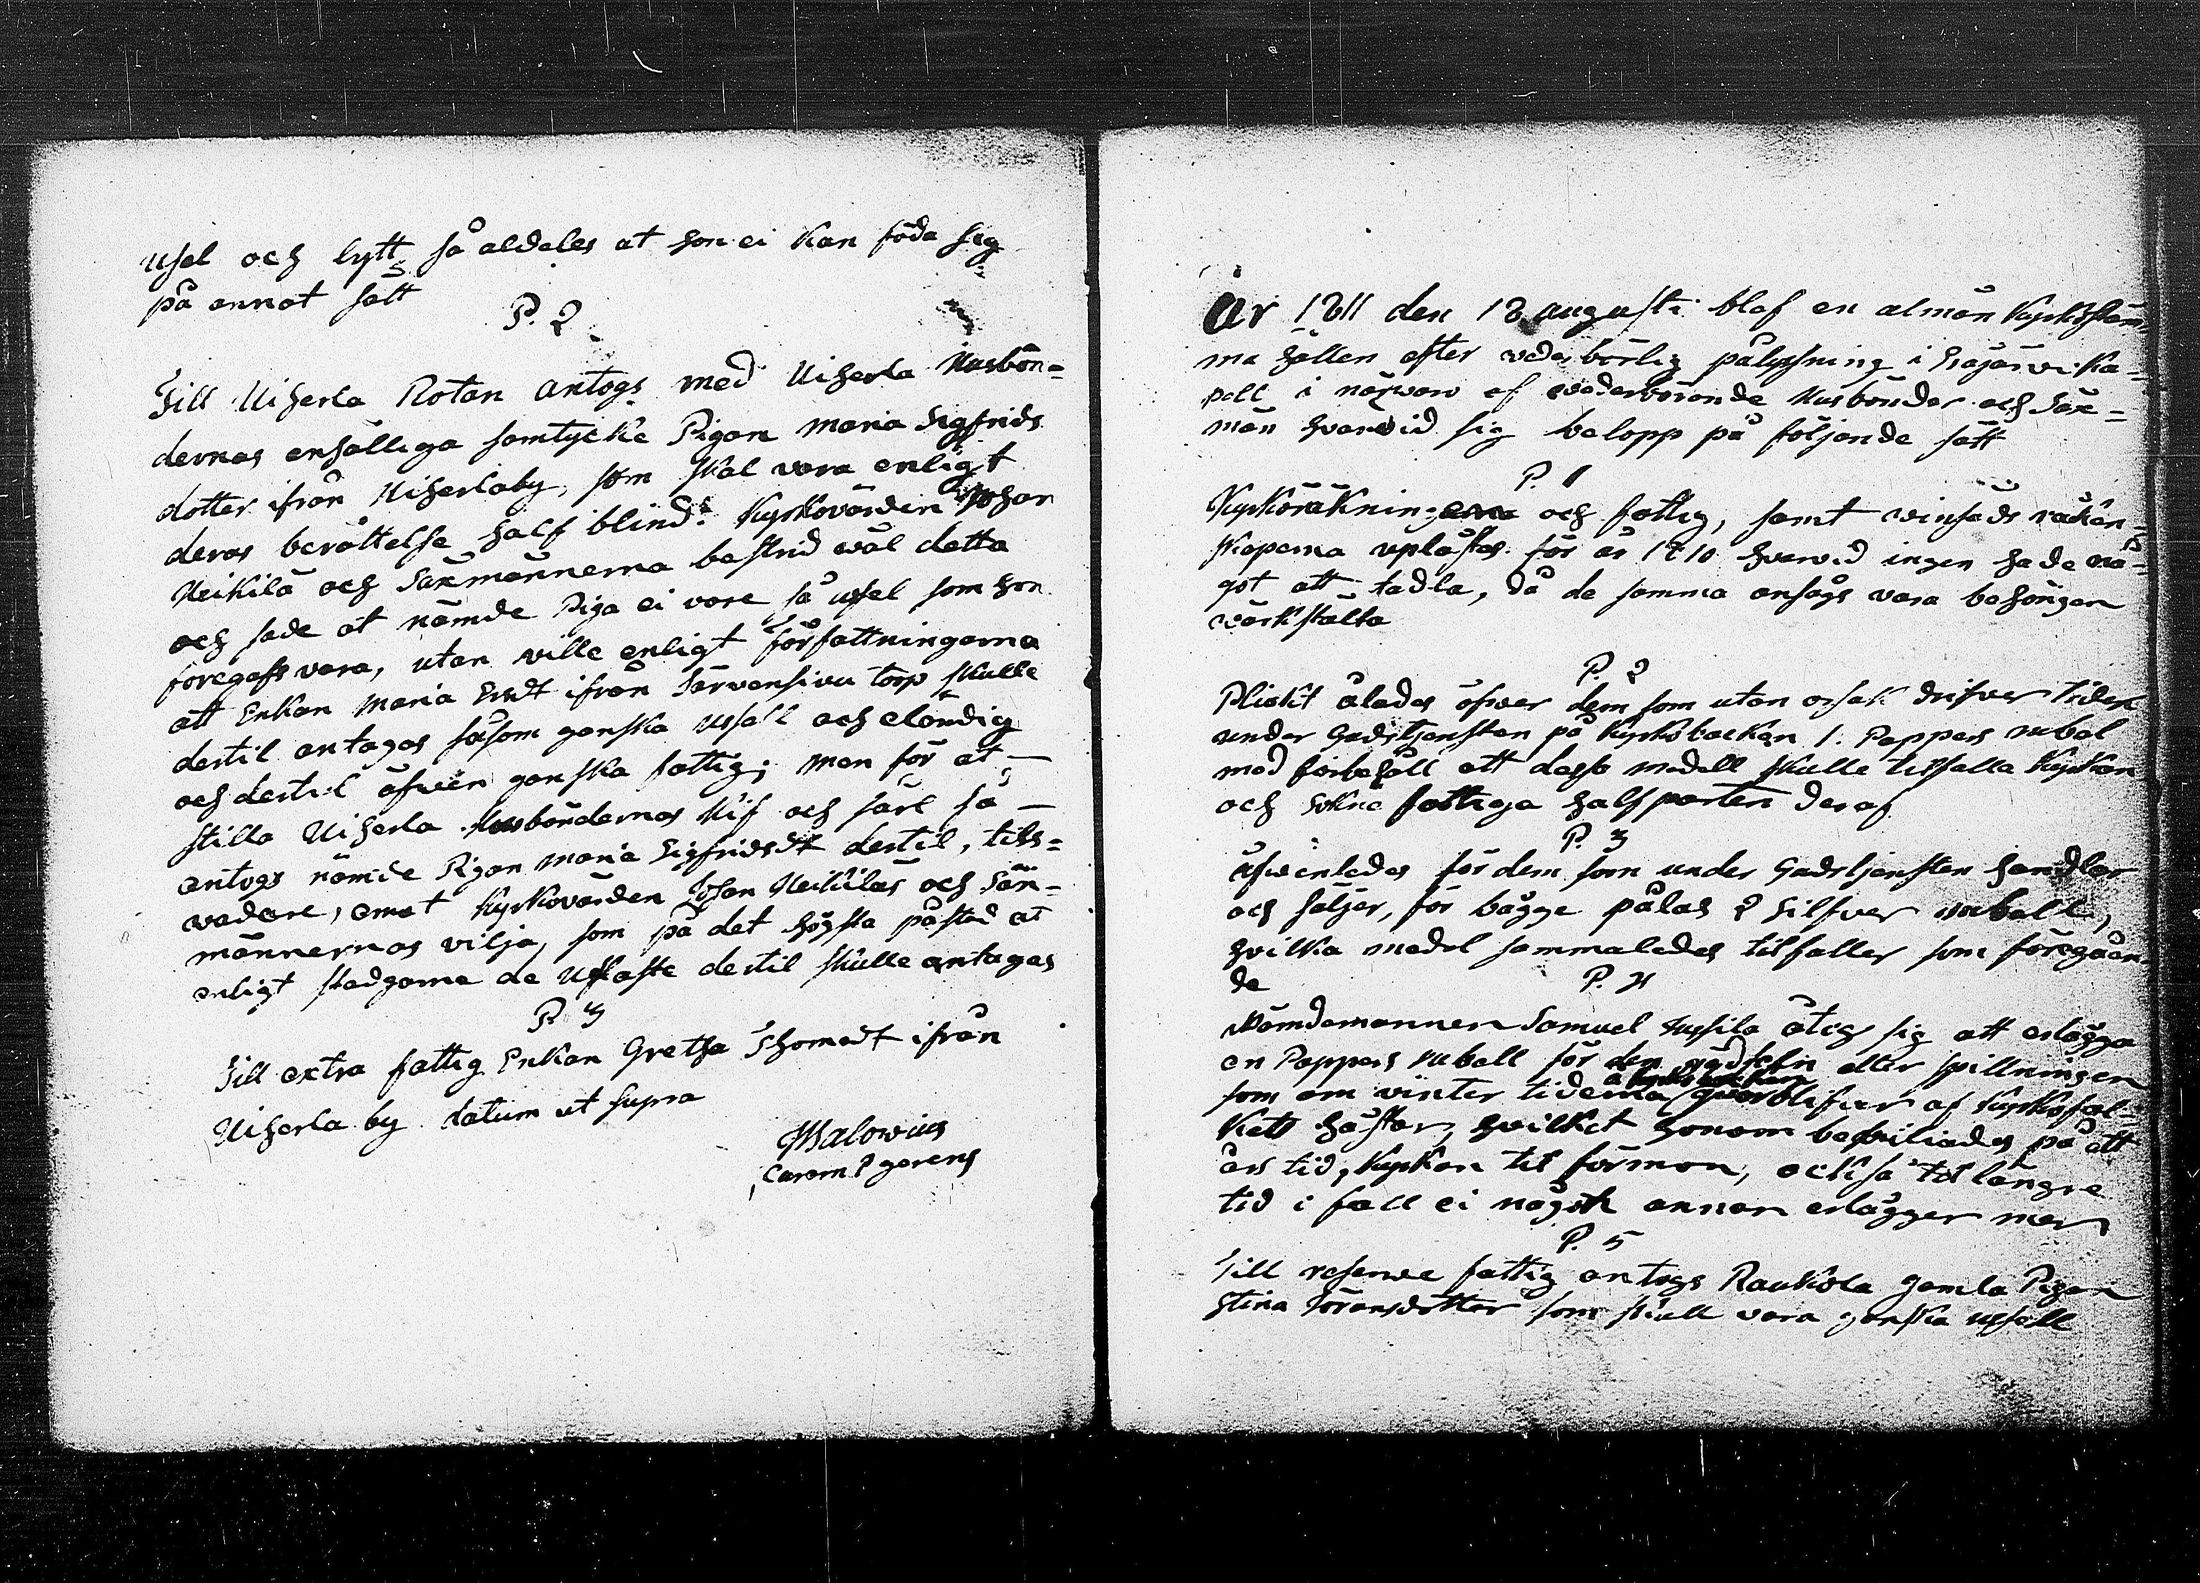 usel och lytt så aldeles at hon ei kan föda sig
på annot sätt
P. 2
Till Uiherla Rotan antogs med Uiherla Husbön-
dernas enhälliga samtycke Pigan Maria Sigfrids
dotter ifrån Uiherlaby, som skal vara enligt
deras berättelse half blind. Kyrkovärden Johan
Heikilä och Sexmännerna bestrid wäl detta
och sade at nämde Piga ei vore så ussel som hon
föregafs vara, utan ville enligt författningarna
att Enkan Maria Ersdt ifrån Särvensivu torp skulle
dertil antagas såsom ganska ussell och eländig
och dertil äfwen ganska fattig; men för at
stilla Uiherla Husböndernas Kif och sårl så
antogs nämde Pigan Maria Sigfridsdt dertil, tills-
wadare, emot Kyrkovärden Johan Heikiläs och Säx-
männernas vilja, som på det högsta påstod at
enligt stadgarna de Uslaste dertil skulle antagas
P. 3
Till extra fattig Enkan Gretha Thomædt ifrån
Uiherla by. datum ut supra
curam gerens
År 1811 den 18 augusti blef en almän Kyrkostäm-
ma hållen efter wederbörlig pålysning i Kapell
pell i närwaro af wederbörande Husbönder och Säx-
män hvarvid sig belopp på följande sätt
P. 1
Kyrkoräkningarna och fattig, samt winhäds räken-
skaperna uplästes för år 1810 hvarvid ingen hade nå-
got att tadla, då de samma ansågs vara behörigen
wärkstälta
P. 2
Plickt ålades öfwer dem som utan orsak drifver tiden
under Gudstjensten på Kyrkobacken 1. Peppers rubel
med förbehåll att desse medell skulle tilfalla Kyrkan
och sokne fattiga halfparten deraf
P. 3
äfwenledes för dem som under Gudstjensten handlar
och säljer, för bägge pålas 2 Silfver rubell,
hvilka medel sammaledes tilfaller som föregåen-
de
P. 4
Nämdemannen Samuel Jussila åtog sig att erlägga
en Peppers rubell för den gödseln eller spillningen
som om vinter tiderna å kyrkobacken qvarblifver af Kyrkofol-
kets hästar, hvilket honom bewiliades på ett
års tid, Kyrkan til förmon, också til längre
tid i fall ei någon annan erlägger mer
P. 5
Till reserve fattig antogs Raukola gamla Pigan
Stina Göransdotter som skall vara ganska ussell